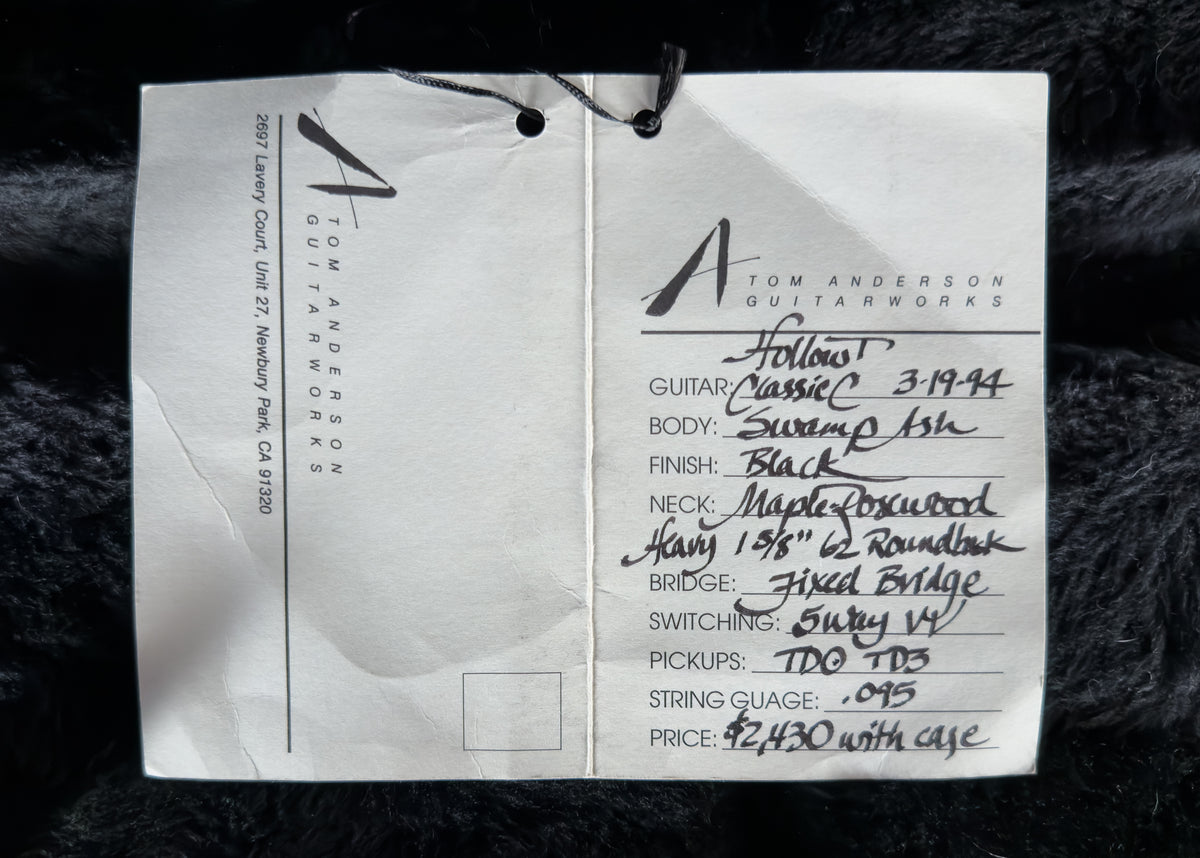 TOM ANDERSON
GUITARWORKS
2697 Lavery Court, Unit 27, Newbury Park, CA 91320
TOM ANDERSON
GUITARWORKS
Hollow T
GUITAR: Classic C 3-19-94
BODY: Swamp Ash
FINISH: Black
NECK: Maple-Rosewood
Heavy 1 5/8" 62 Roundback
BRIDGE: Fixed Bridge
SWITCHING: 5 Way VV
PICKUPS: TD0 TD3
STRING GUAGE: .095
PRICE: $2,430 with case